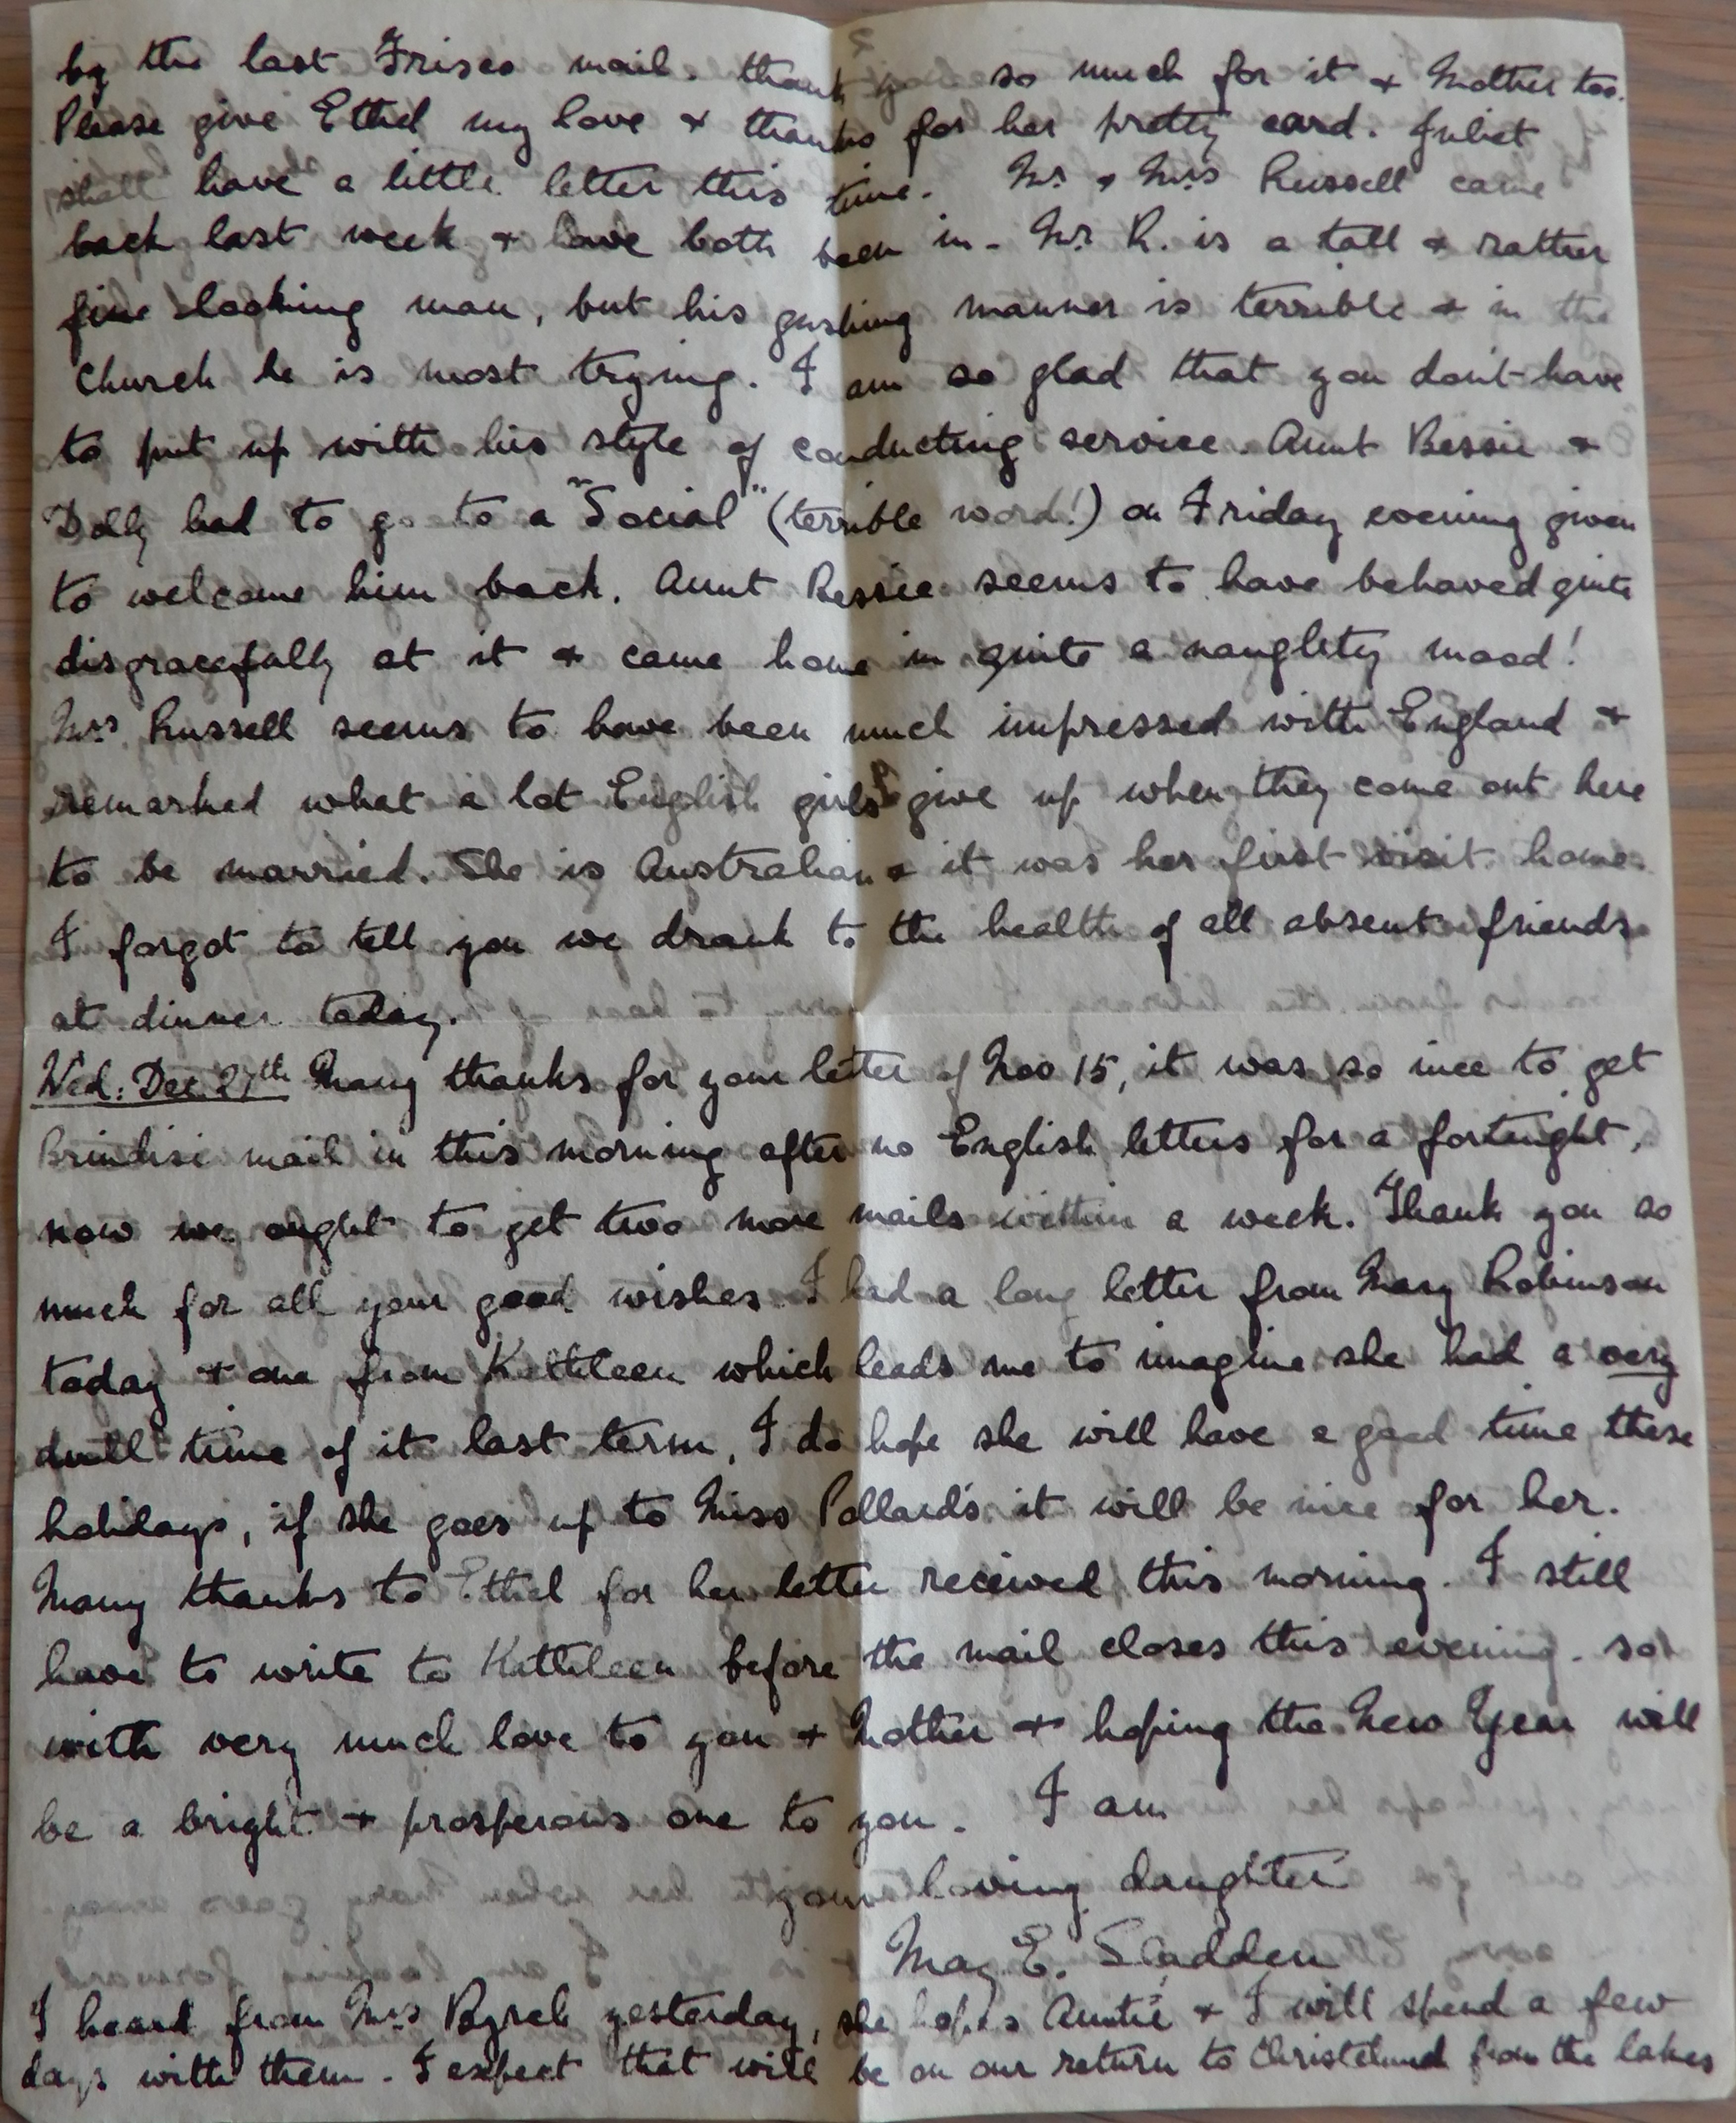 by the last Frisco mail. thank you so much for it & Mother too.
Please give Ethel my love & thanks for her pretty card. Juliet
shall have a little letter this time. Mr & Mrs Russell came
back last week & have both been in. Mr R. is a tall & rather
fine looking man, but his gushing manner is terrible & in the
Church he is most trying. I am so glad that you don't have
to put up with his style of conducting service. Aunt Bessie &
Dolly had to go to a "Social" (terrible word!) on Friday evening given
to welcome him back. Aunt Bessie seems to have behaved quite
disgracefully at it & came home in quite a naughty mood!
Mrs Russell seems to have been much impressed with England &
remarked what a lot English girls give up when they come out here
to be married. She is Australian & it was her first visit home.
I forgot to tell you we drank to the health of all absent friends
at dinner today.
Wed: Dec 27th Many thanks for your letter of Nov 15, it was so nice to get
Brindisi mail in this morning after no English letters for a fortnight,
now we ought to get two more mails within a week. Thank you so
much for all your good wishes. I had a long letter from Mary Robinson
today & one from Kathleen which leads me to imagine she had a very
dull time of it last term, I do hope she will have a good time these
holidays, if she goes up to Miss Pollard's it will be nice for her.
Many thanks to Ethel for her letter received this morning. I still
have to write to Kathleen before the mail closes this evening. so
with very much love to you & Mother & hoping the New Year will
be a bright & prosperous one to you. I am
your loving daughter
May E. Sladden
I heard from Mrs Byrch yesterday, she hopes Auntie & I will spend a few
days with them. I expect that will be on our return to Christchurch from the lakes